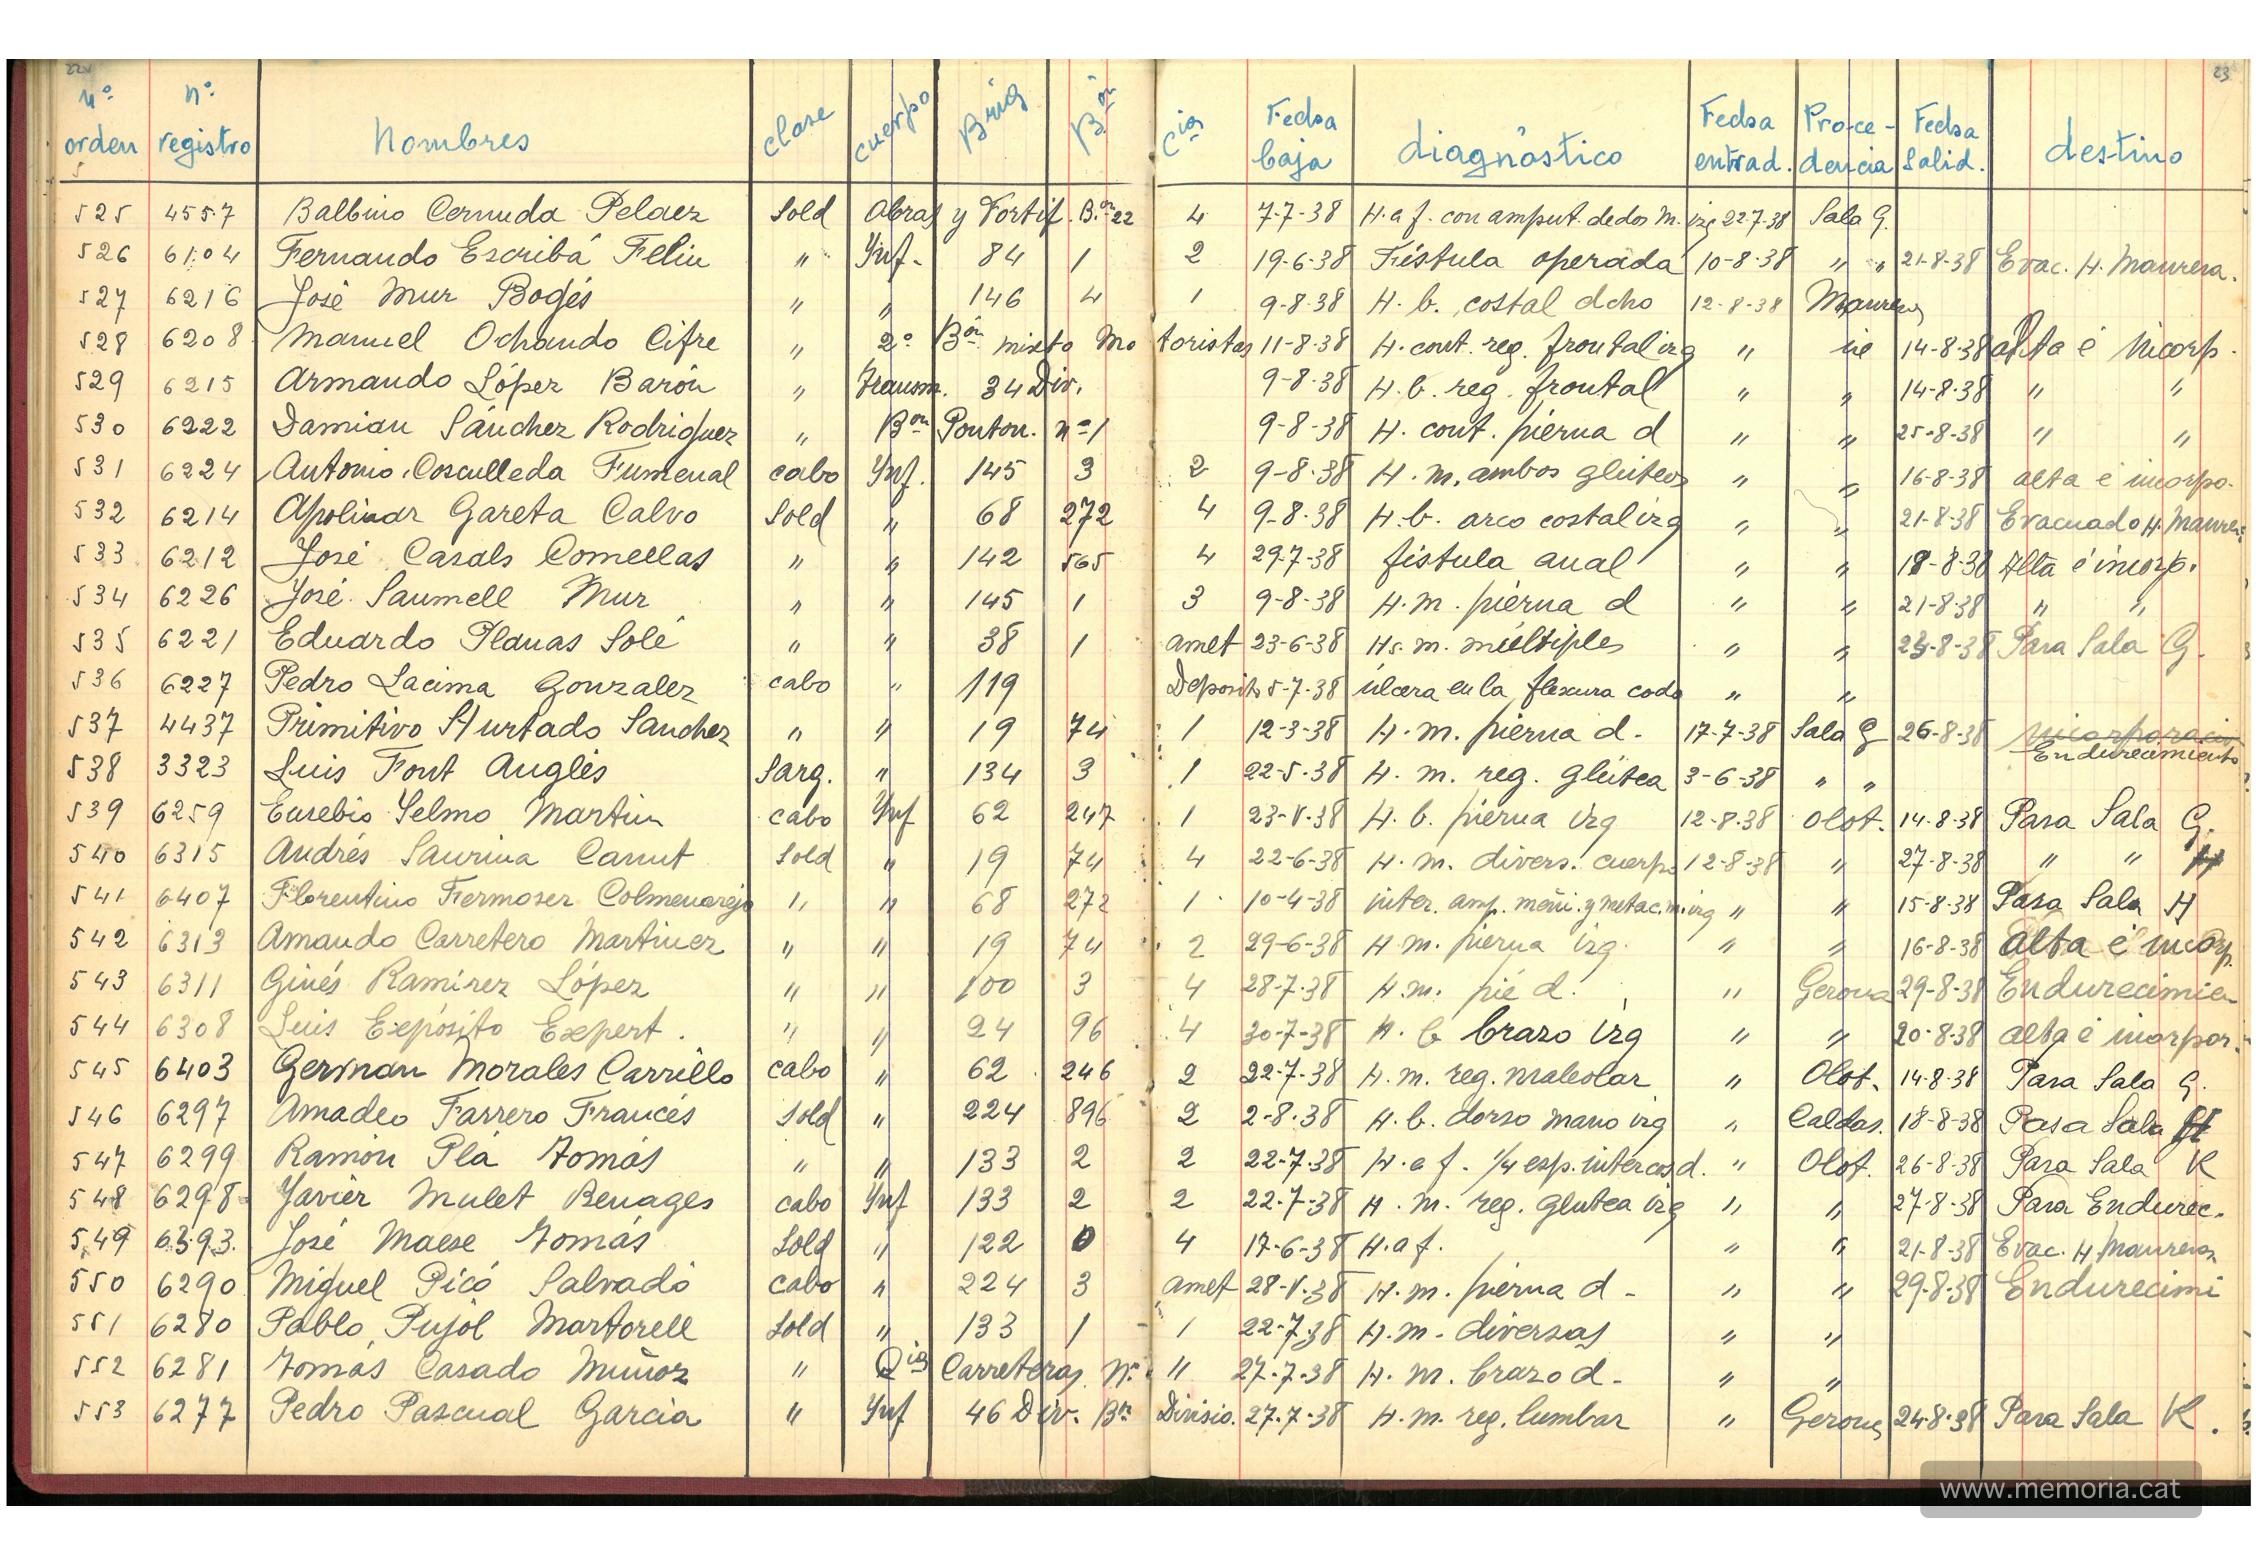 22v 23
nº orden nº registro Nombres clase cuerpo Brig Bón Cia Fecha baja diagnóstico Fecha entrad. Proce-dencia Fecha Salid. destino
525 4557 Balbino Cernuda Pelaez Sold Obras y Fortif. Bón 22 4 7-7-38 H. a f. con amput. dedos m. izq 22-7-38 Sala G.
526 6104 Fernando Escribá Feliu " Ynf. 84 1 2 19-6-38 Fístula operada 10-8-38 " " 21-8-38 Evac. H. Maurera.
527 6216 José Mur Bogés " " 146 4 1 9-8-38 H. b. costal dcho 12-8-38
528 6208 Manuel Ochando Cifre " 2º Bón mixto Motoristas 11-8-38 H. cont. reg. frontal izq " 14-8-38 alta é incorp.
529 6215 Armando López Barón " Transm. 34 Div. 9-8-38 H. b. reg. frontal " " 14-8-38 " "
530 6222 Damian Sánchez Rodriguez " Bón Ponton. nº 1 9-8-38 H. cont. pierna d " " 25-8-38 " "
531 6224 Antonio Cosculleda Fumenal cabo Ynf. 145 3 2 9-8-38 H. m. ambos glúteos " " 16-8-38 alta é incorpo.
532 6214 Apolinar Gareta Calvo Sold " 68 272 4 9-8-38 H. b. arco costal izq " " 21-8-38 Evacuado H. Maurer
533 6212 José Casals Comellas " " 142 565 4 29-7-38 fístula anal " " 18-8-38 Alta é incorp.
534 6226 José Saumell Mur " " 145 1 3 9-8-38 H. m. pierna d " " 21-8-38 " "
535 6221 Eduardo Planas Solé " " 38 1 amet 23-6-38 Hs. m. múltiples " " 23-8-38 Para Sala G.
536 6227 Pedro Lacima Gonzalez cabo " 119 Deposito 5-7-38 úlcera en la flexura codo " "
537 4437 Primitivo Hurtado Sanchez " " 19 74 1 12-3-38 H. m. pierna d. 17-7-38 Sala G 26-8-38 incorporacio
Endurecimiento
538 3323 Luis Font Anglés Sarg. " 134 3 1 22-5-38 H. m. reg. glútea 3-6-38 " "
539 6259 Eusebio Yelmo Martin cabo Ynf 62 247 1 23-V-38 H. b. pierna izq 12-8-38 Olot. 14-8-38 Para Sala G.
540 6315 Andrés Saurina Canut Sold " 19 74 4 22-6-38 H. m. divers. cuerpo 12-8-38 " 27-8-38 " " H
541 6407 Florentino Fermoser Colmenarejo " " 68 272 1 10-4-38 inter. amp. meñi. y metac. m. izq " " 15-8-38 Pasa Sala H
542 6313 Amando Carretero Martinez " " 19 74 2 29-6-38 H. m. pierna izq. " " 16-8-38 alta é incorp.
543 6311 Ginés Ramírez López " " 100 3 4 28-7-38 H. m. pié d. " Gerona 29-8-38 Endurecimien
544 6308 Luis Expósito Expert. " " 24 96 4 30-7-38 H. b brazo izq " " 20-8-38 alta é incorpor.
545 6403 German Morales Carrillo cabo " 62 246 2 22-7-38 H. m. reg. maleolar " Olot. 14-8-38 Para Sala G.
546 6297 Amadeo Farrero Francés Sold " 224 896 2 2-8-38 H. b. dorso mano izq " Caldas. 18-8-38 Pasa Sala H
547 6299 Ramón Plá Tomás " " 133 2 2 22-7-38 H. a f. 1/4 esp. intercos d. " Olot. 26-8-38 Para Sala K
548 6298 Javier Mulet Benages cabo Ynf 133 2 2 22-7-38 H. m. reg. glutea izq " " 27-8-38 Para Endurec.
549 6393. José Maese Tomás Sold " 122 0 4 17-6-38 H. a f. " " 21-8-38 Evac. H Maurera
550 6290 Miguel Picó Salvadó cabo " 224 3 amet 28-V-38 H. m. pierna d. " " 29-8-38 Endurecimi
551 6280 Pablo Pujol Martorell Sold " 133 1 1 22-7-38 H. m. diversas " "
552 6281 Tomás Casado Muñoz " Cia Carreteras Nº 11 27-7-38 H. m. brazo d. " "
553 6277 Pedro Pascual Garcia " Ynf 46 Div. Bn Divisio. 27-7-38 H. m. reg. lumbar " Gerona 24-8-38 Para Sala K.
www.memoria.cat